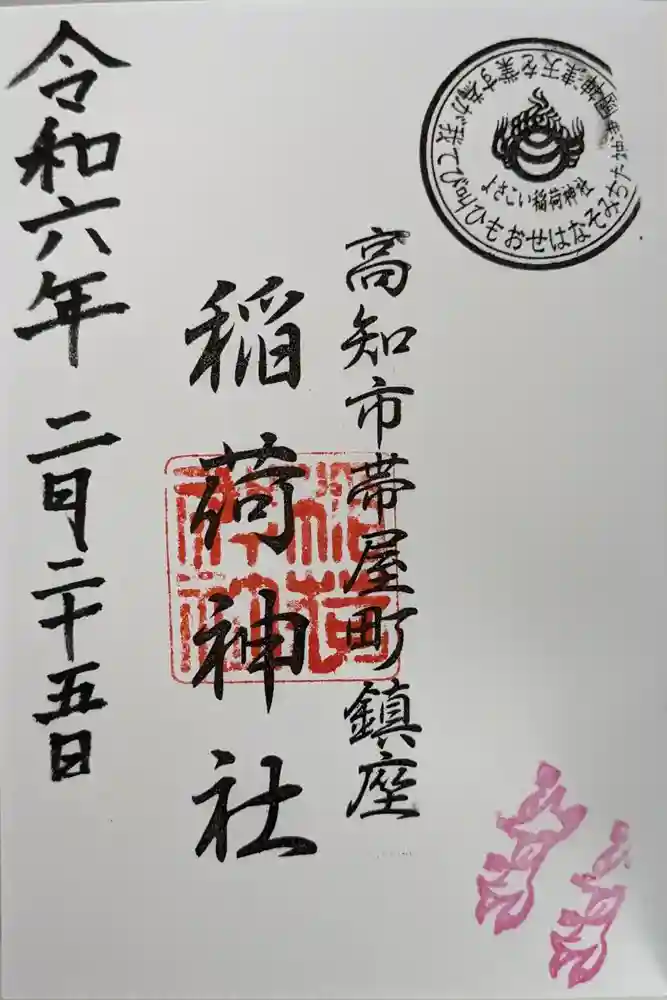 よさこい稲荷神社
高知市帯屋町鎮座
稲荷神社
稲荷
神社
令和六年 二月二十五日